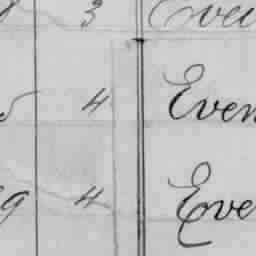 3 Eve
5 4 Even
9 4 Eve